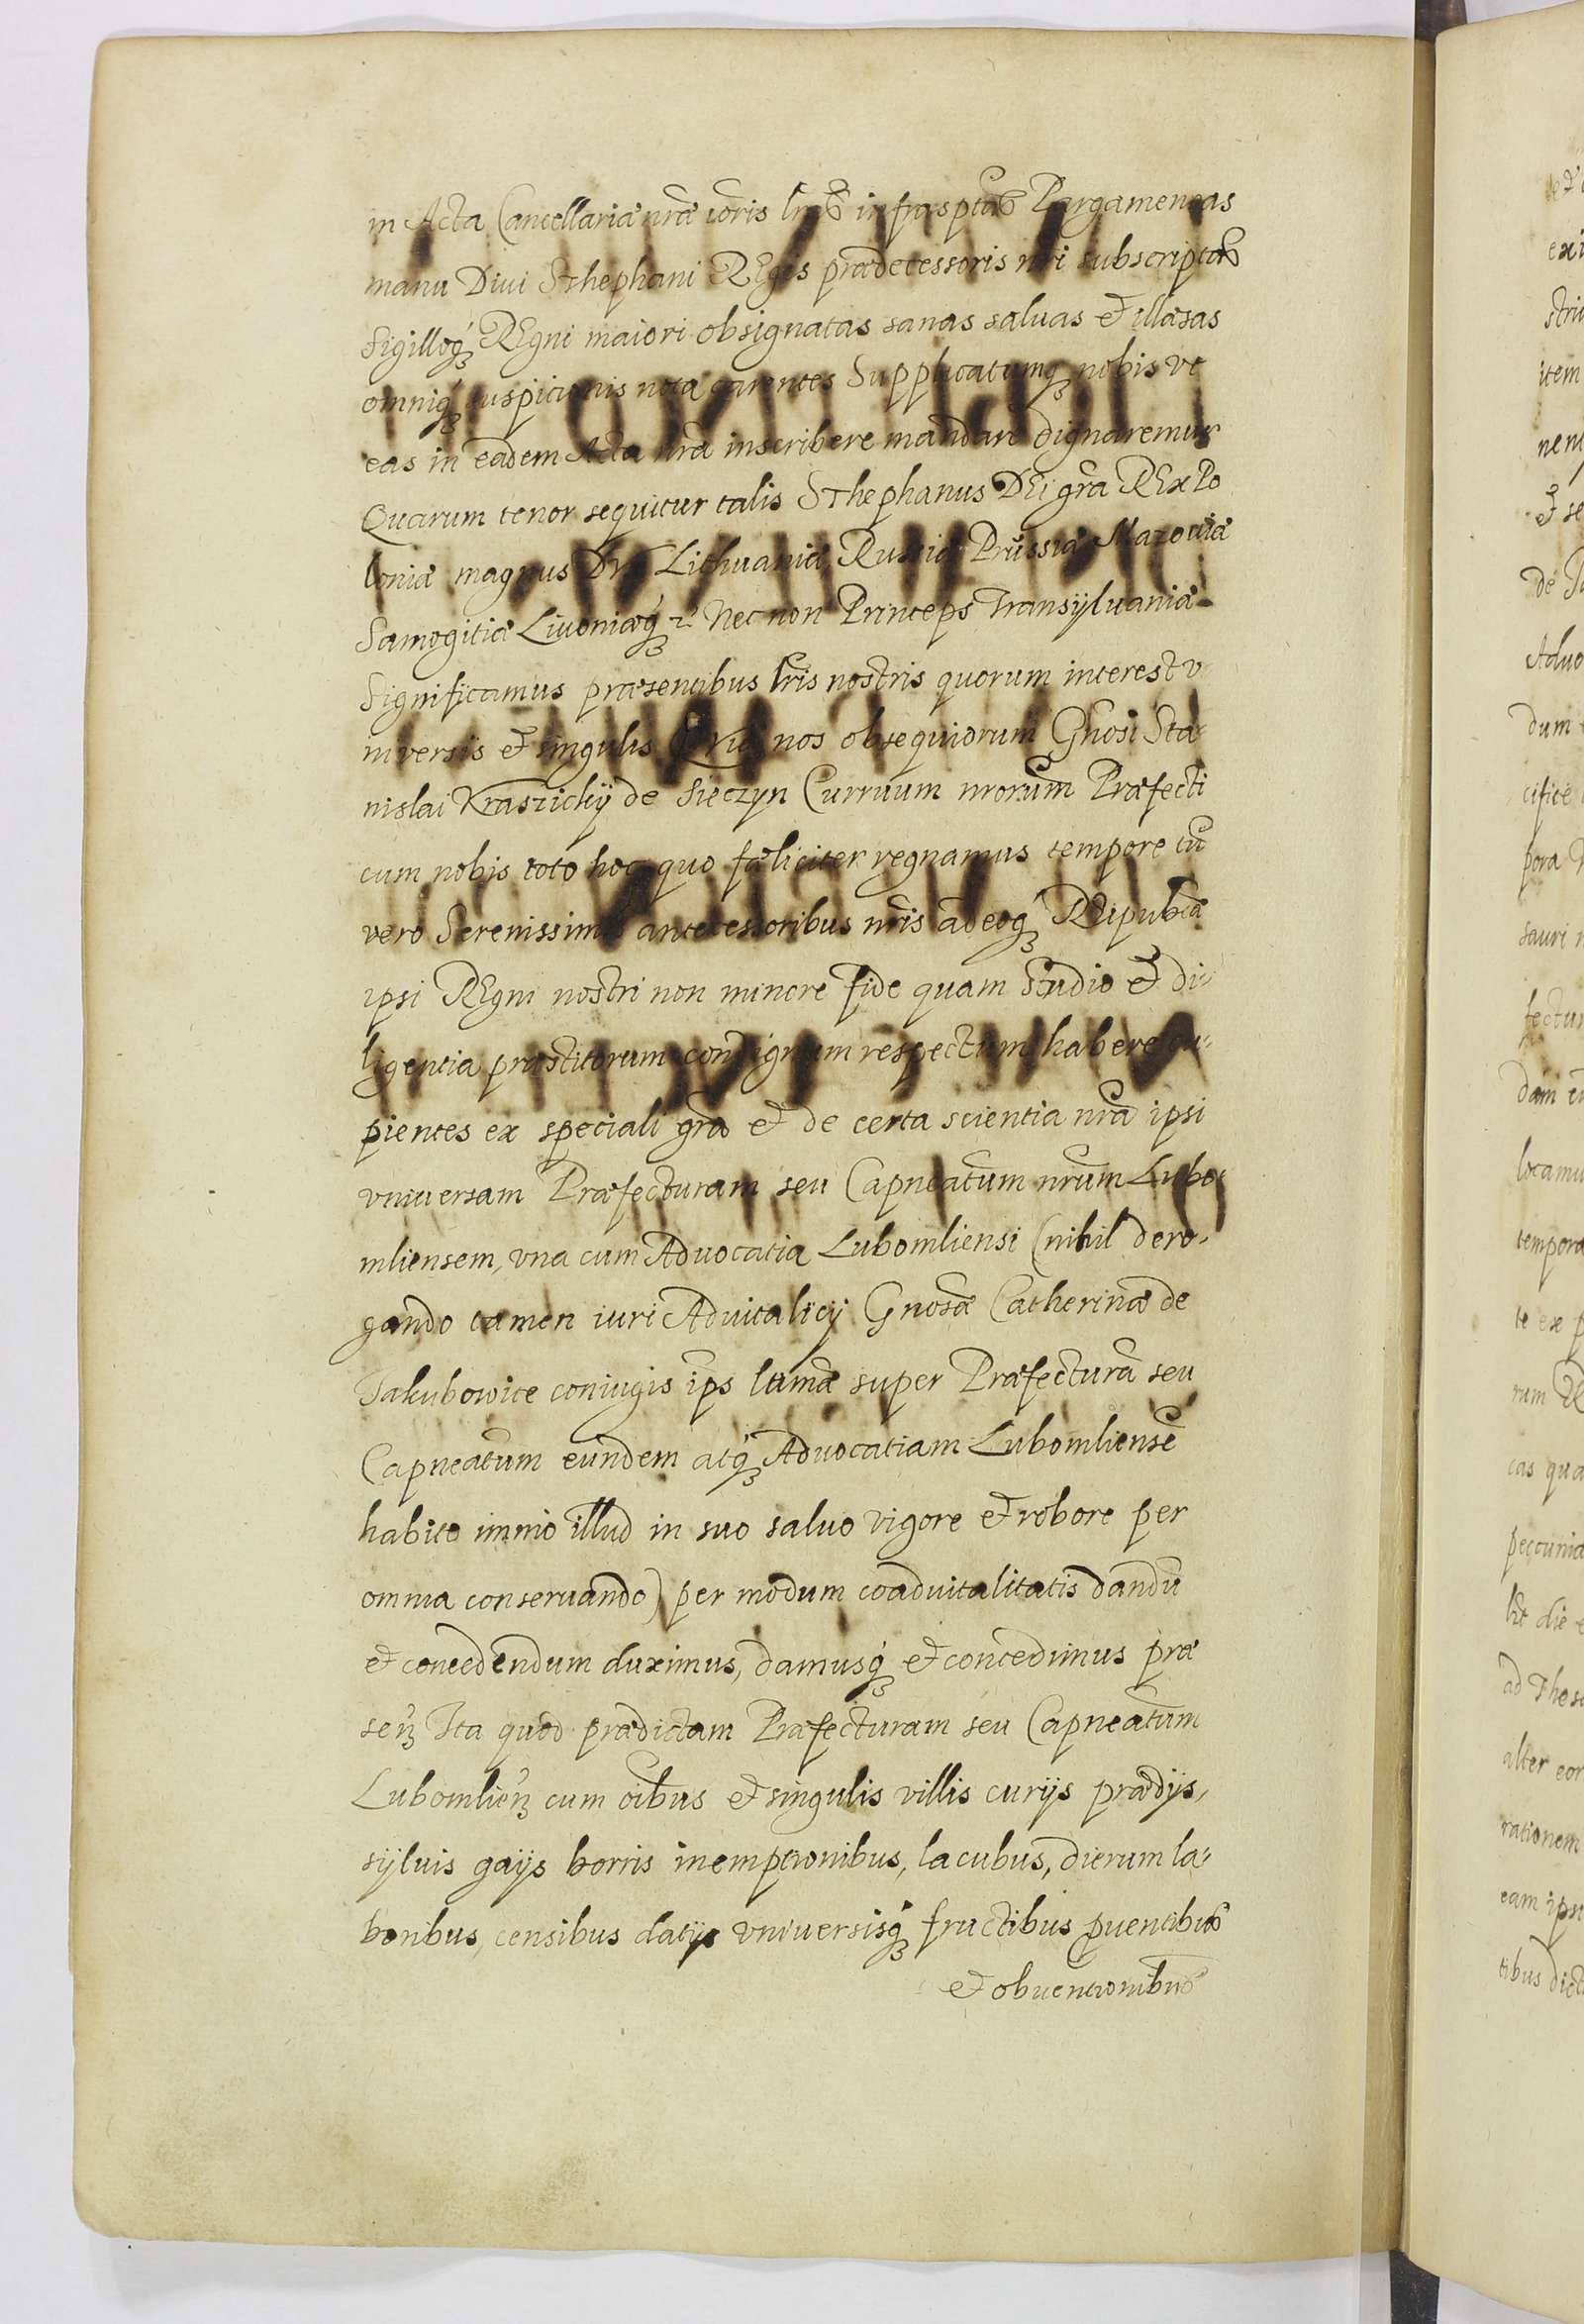 in Acta Cancellariæ nræ coris lras infrasptas Pargameneas
manu Diui Sthephani REgis prædecessoris nri subscriptas
Sigilloq REgni maiori obsignatas sanas saluas et illæsas
omniq suspicionis nota carentes Supplicatumq nobis vt
eas in eadem Acta nra inscribere mandare dignaremur
Quarum tenor sequitur talis Sthephanus DEi gra REx Po
loniæ magnus Dux Lithuaniæ Russiæ Prussiæ Mazouiæ
Samogitiæ Liuoniæq Nec non Princeps Transyluaniæ
Significamus præsentibus lris nostris quorum interest v
niversis et singulis Quia nos obsequiorum Gnosi Sta
nislai Kraszickÿ de Sieczyn Curruum nrorum Præfecti
cum nobis toto hoc quo fæliciter regnamus tempore tu
vero Serenissimis antecessoribus nris adeoq REipublæ
ipsi REgni nostri non minore fide quam Studio et di-
ligentia præstitorum condignum respectum habere cu-
pientes ex speciali gra et de certa scientia nra ipsi
vniuersam Præfecturam seu Capneatum nrum Lubo
mliensem, vna cum Aduocatia Lubomliensi (nihil dero-
gando tamen iuri Aduitalicÿ Gnosæ Catherinæ de
Jakubowice coniugis ips lumæ super Præfectura seu
Capneatum eundem atq Aduocatiam Lubomliense
habito immo illud in suo saluo vigore et robore per
omnia conseruando) per modum coaduitalitatis dandu
et concedendum duximus, damusq et concedimus præ
sen Ita quod prædictam Præfecturam seu Capneatum
Lubomlien cum oibus et singulis villis curÿs prædÿs,
sÿluis gaÿs borris inemptionibus, lacubus, dierum la-
boribus, censibus datÿs vniuersisq fructibus puentibus
et obuentionibus